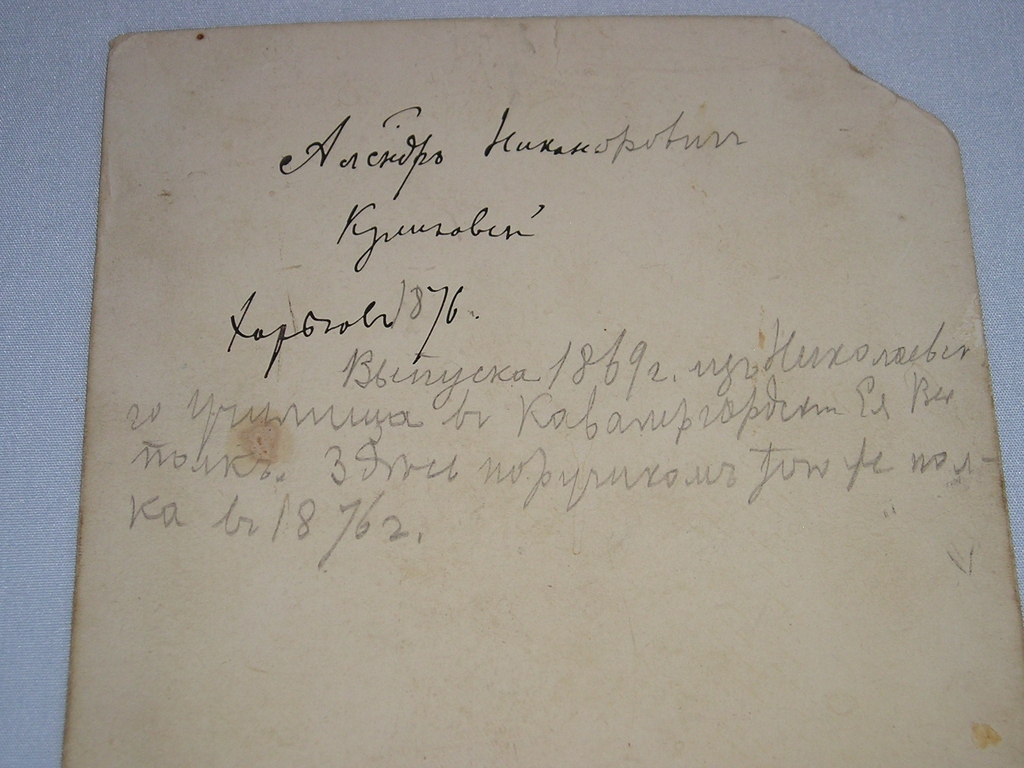 Алсндръ Никоноровичъ
Куликовскій
Харьковъ 1876.
Выпуска 1869 г. изъ Николаевск
го училища въ Кавалергардскій Ея Вел
полкъ. Здѣсь поручикомъ того же пол-
ка въ 1876 г.